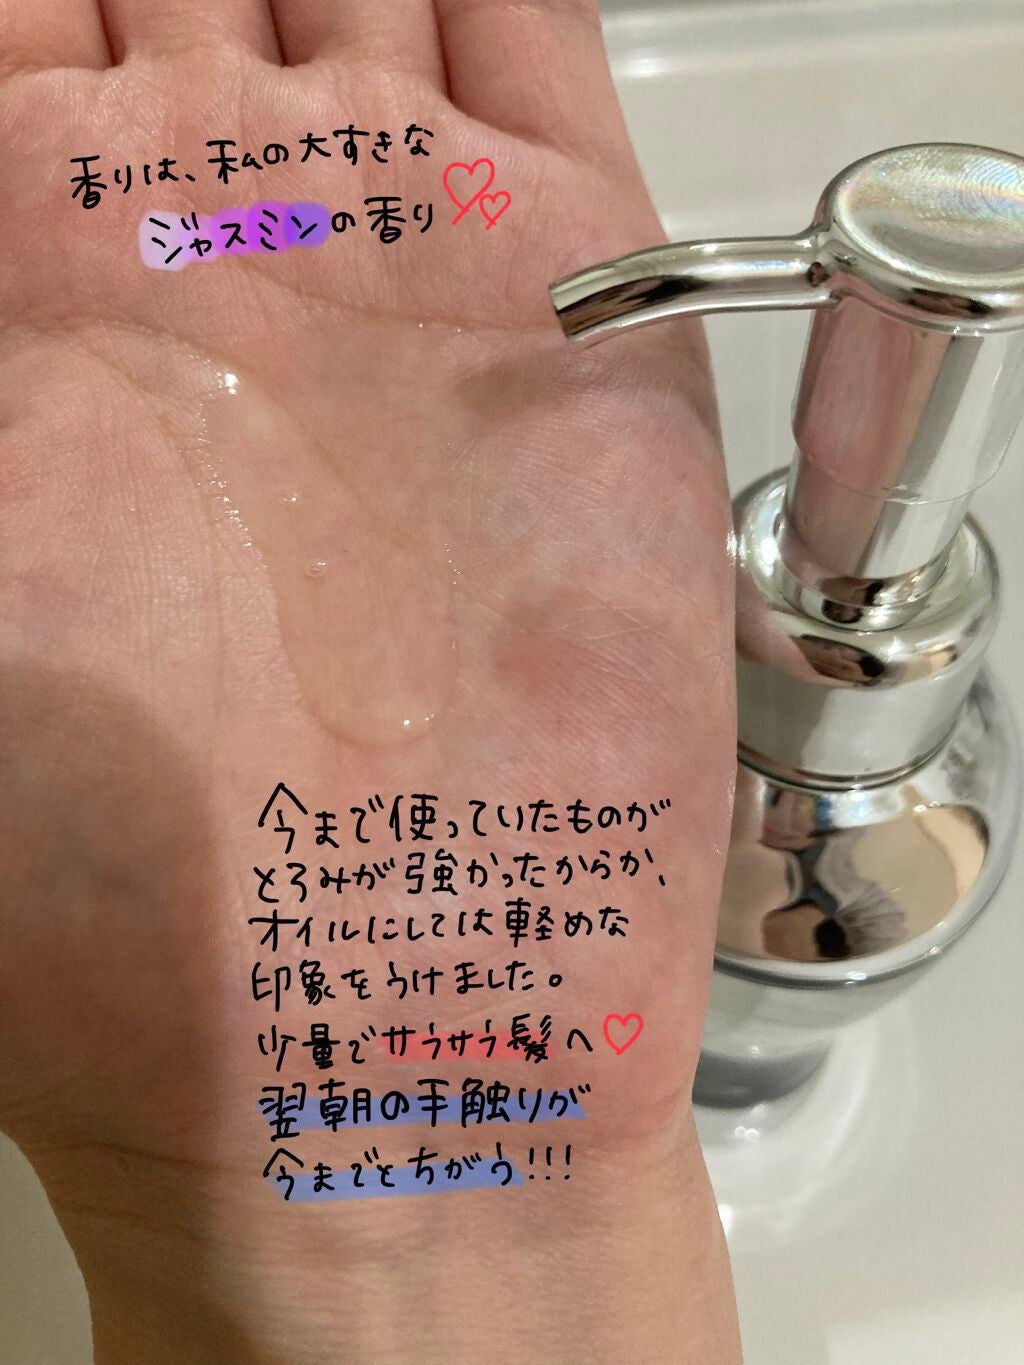 香りは、私の大すきな
ジャスミンの香り
今まで使っていたものが
とろみが強かったからか、
オイルにしては軽めな
印象をうけました。
少量でサラサラ髪へ♡
翌朝の手触りが
今までとちがう!!!